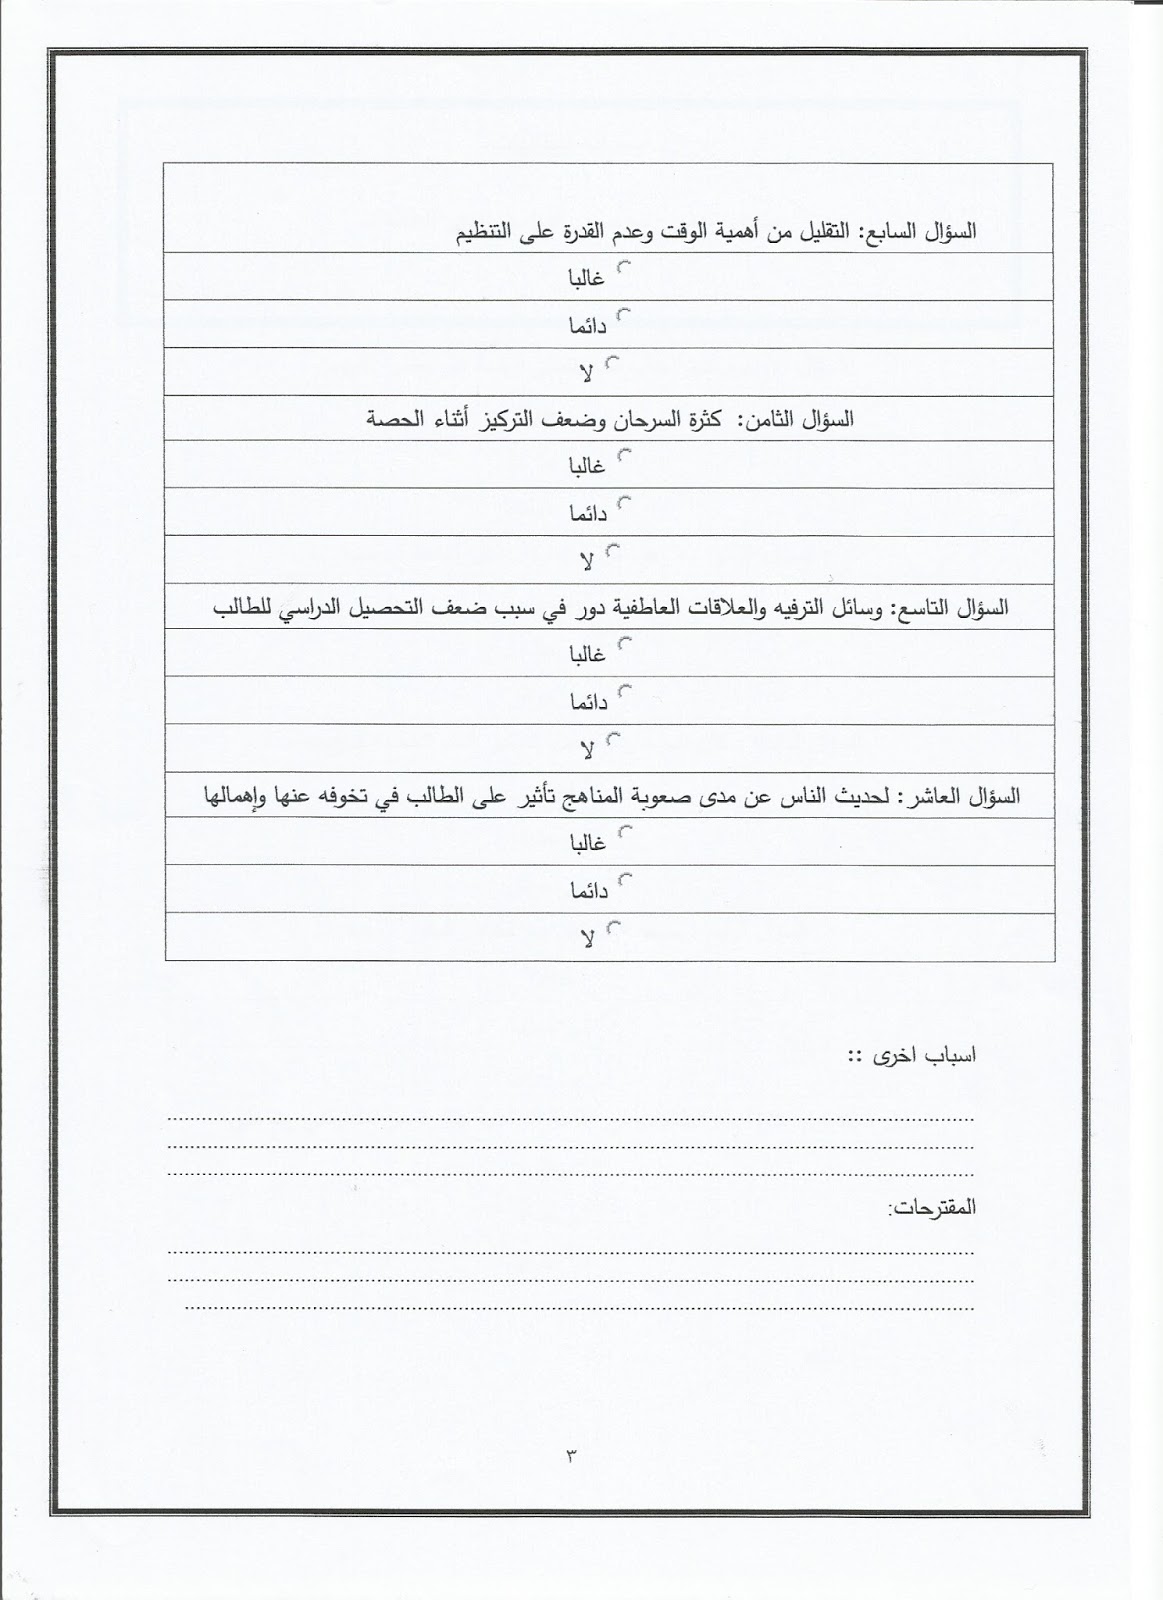 السؤال السابع: التقليل من أهمية الوقت وعدم القدرة على التنظيم
غالبا
دائما
لا
السؤال الثامن: كثرة السرحان وضعف التركيز أثناء الحصة
غالبا
دائما
لا
السؤال التاسع: وسائل الترفيه والعلاقات العاطفية دور في سبب ضعف التحصيل الدراسي للطالب
غالبا
دائما
لا
السؤال العاشر : لحديث الناس عن مدى صعوبة المناهج تأثير على الطالب في تخوفه عنها وإهمالها
غالبا
دائما
لا
اسباب اخرى ::
المقترحات:
٣